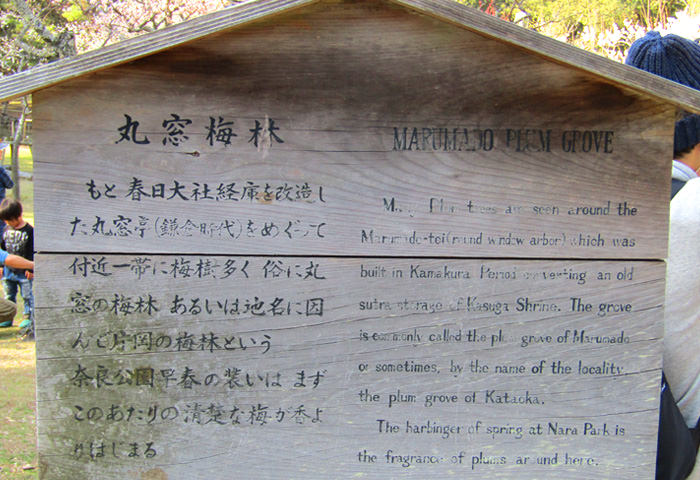 丸窓梅林
もと春日大社経庫を改造し
た丸窓亭(鎌倉時代)をめぐって
付近一帯に梅樹多く 俗に丸
窓の梅林 あるいは地名に因
んで片岡の梅林という
奈良公園早春の装いは まず
このあたりの清楚な梅が香よ
りはじまる
MARUMADO PLUM GROVE
Many Plum trees are seen around the
Marumado-tei (round window arbor) which was
built in Kamakura Period converting an old
sutra storage of Kasuga Shrine. The grove
is commonly called the plum grove of Marumado
or sometimes, by the name of the locality,
the plum grove of Kataoka.
The harbinger of spring at Nara Park is
the fragrance of plums around here.